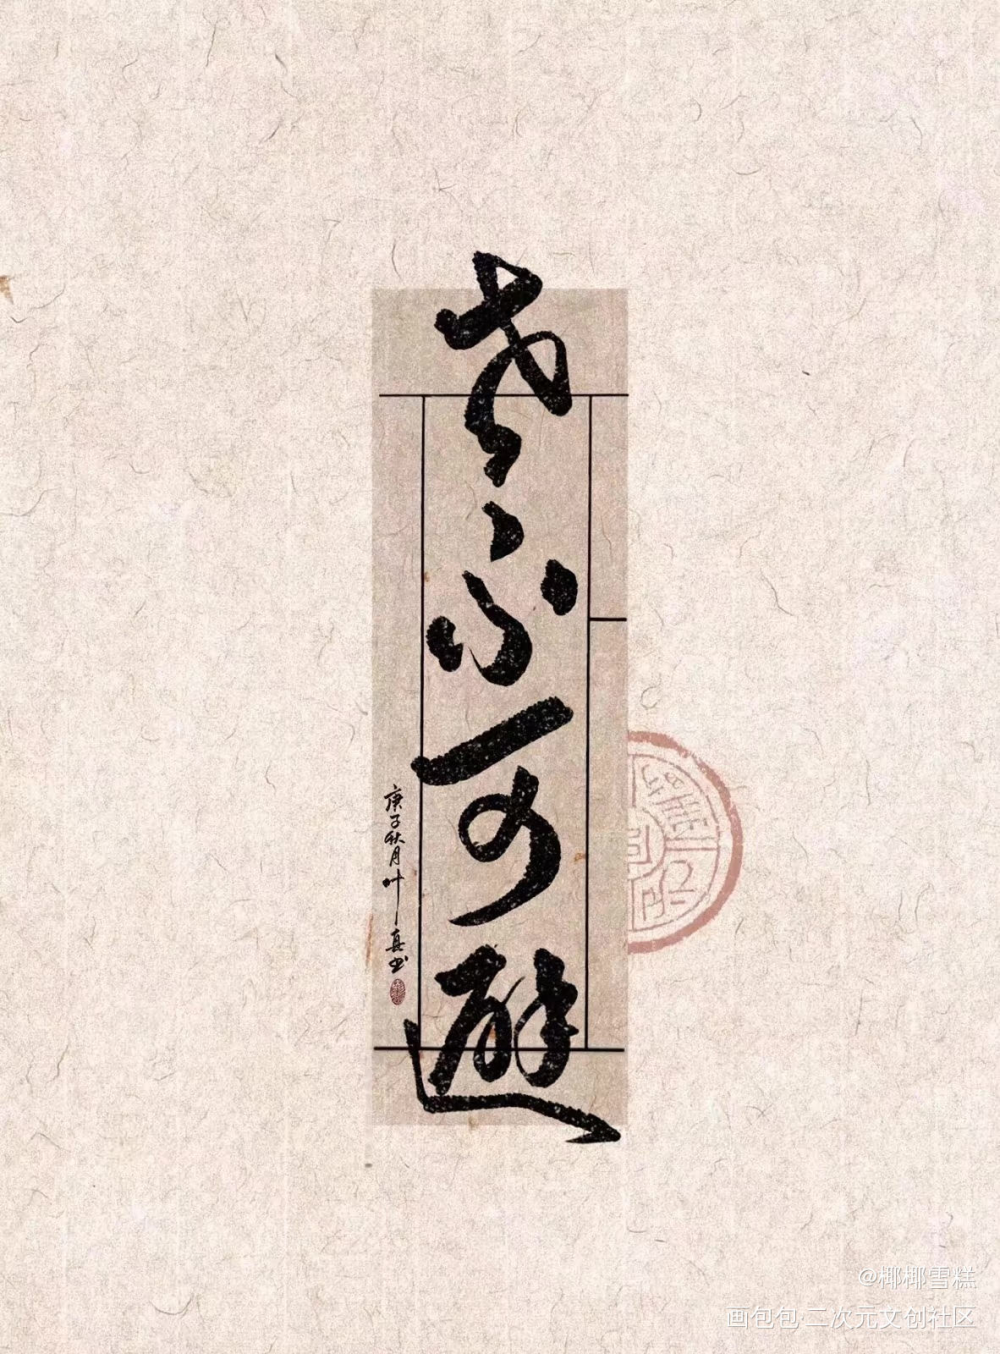 老不可避
庚子秋月叶一真书
@椰椰雪糕
画包包 二次元文创社区